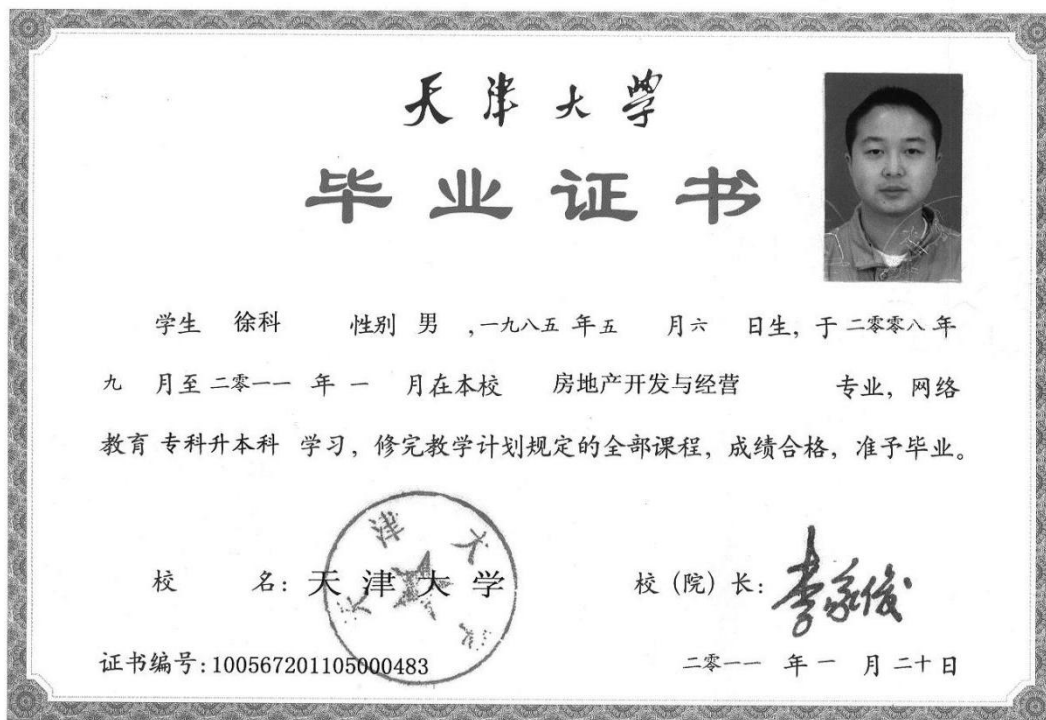 天津大学
毕业证书
学生 徐科 性别 男 ,一九八五 年五 月六 日生，于 二零零八 年
九 月至 二零一一 年 一 月在本校 房地产开发与经营 专业，网络
教育 专科升本科 学习，修完教学计划规定的全部课程，成绩合格，准予毕业。
校 名：天津大学
天津大学
校（院）长：李家俊
证书编号：100567201105000483
二零一一 年 一 月 二十日